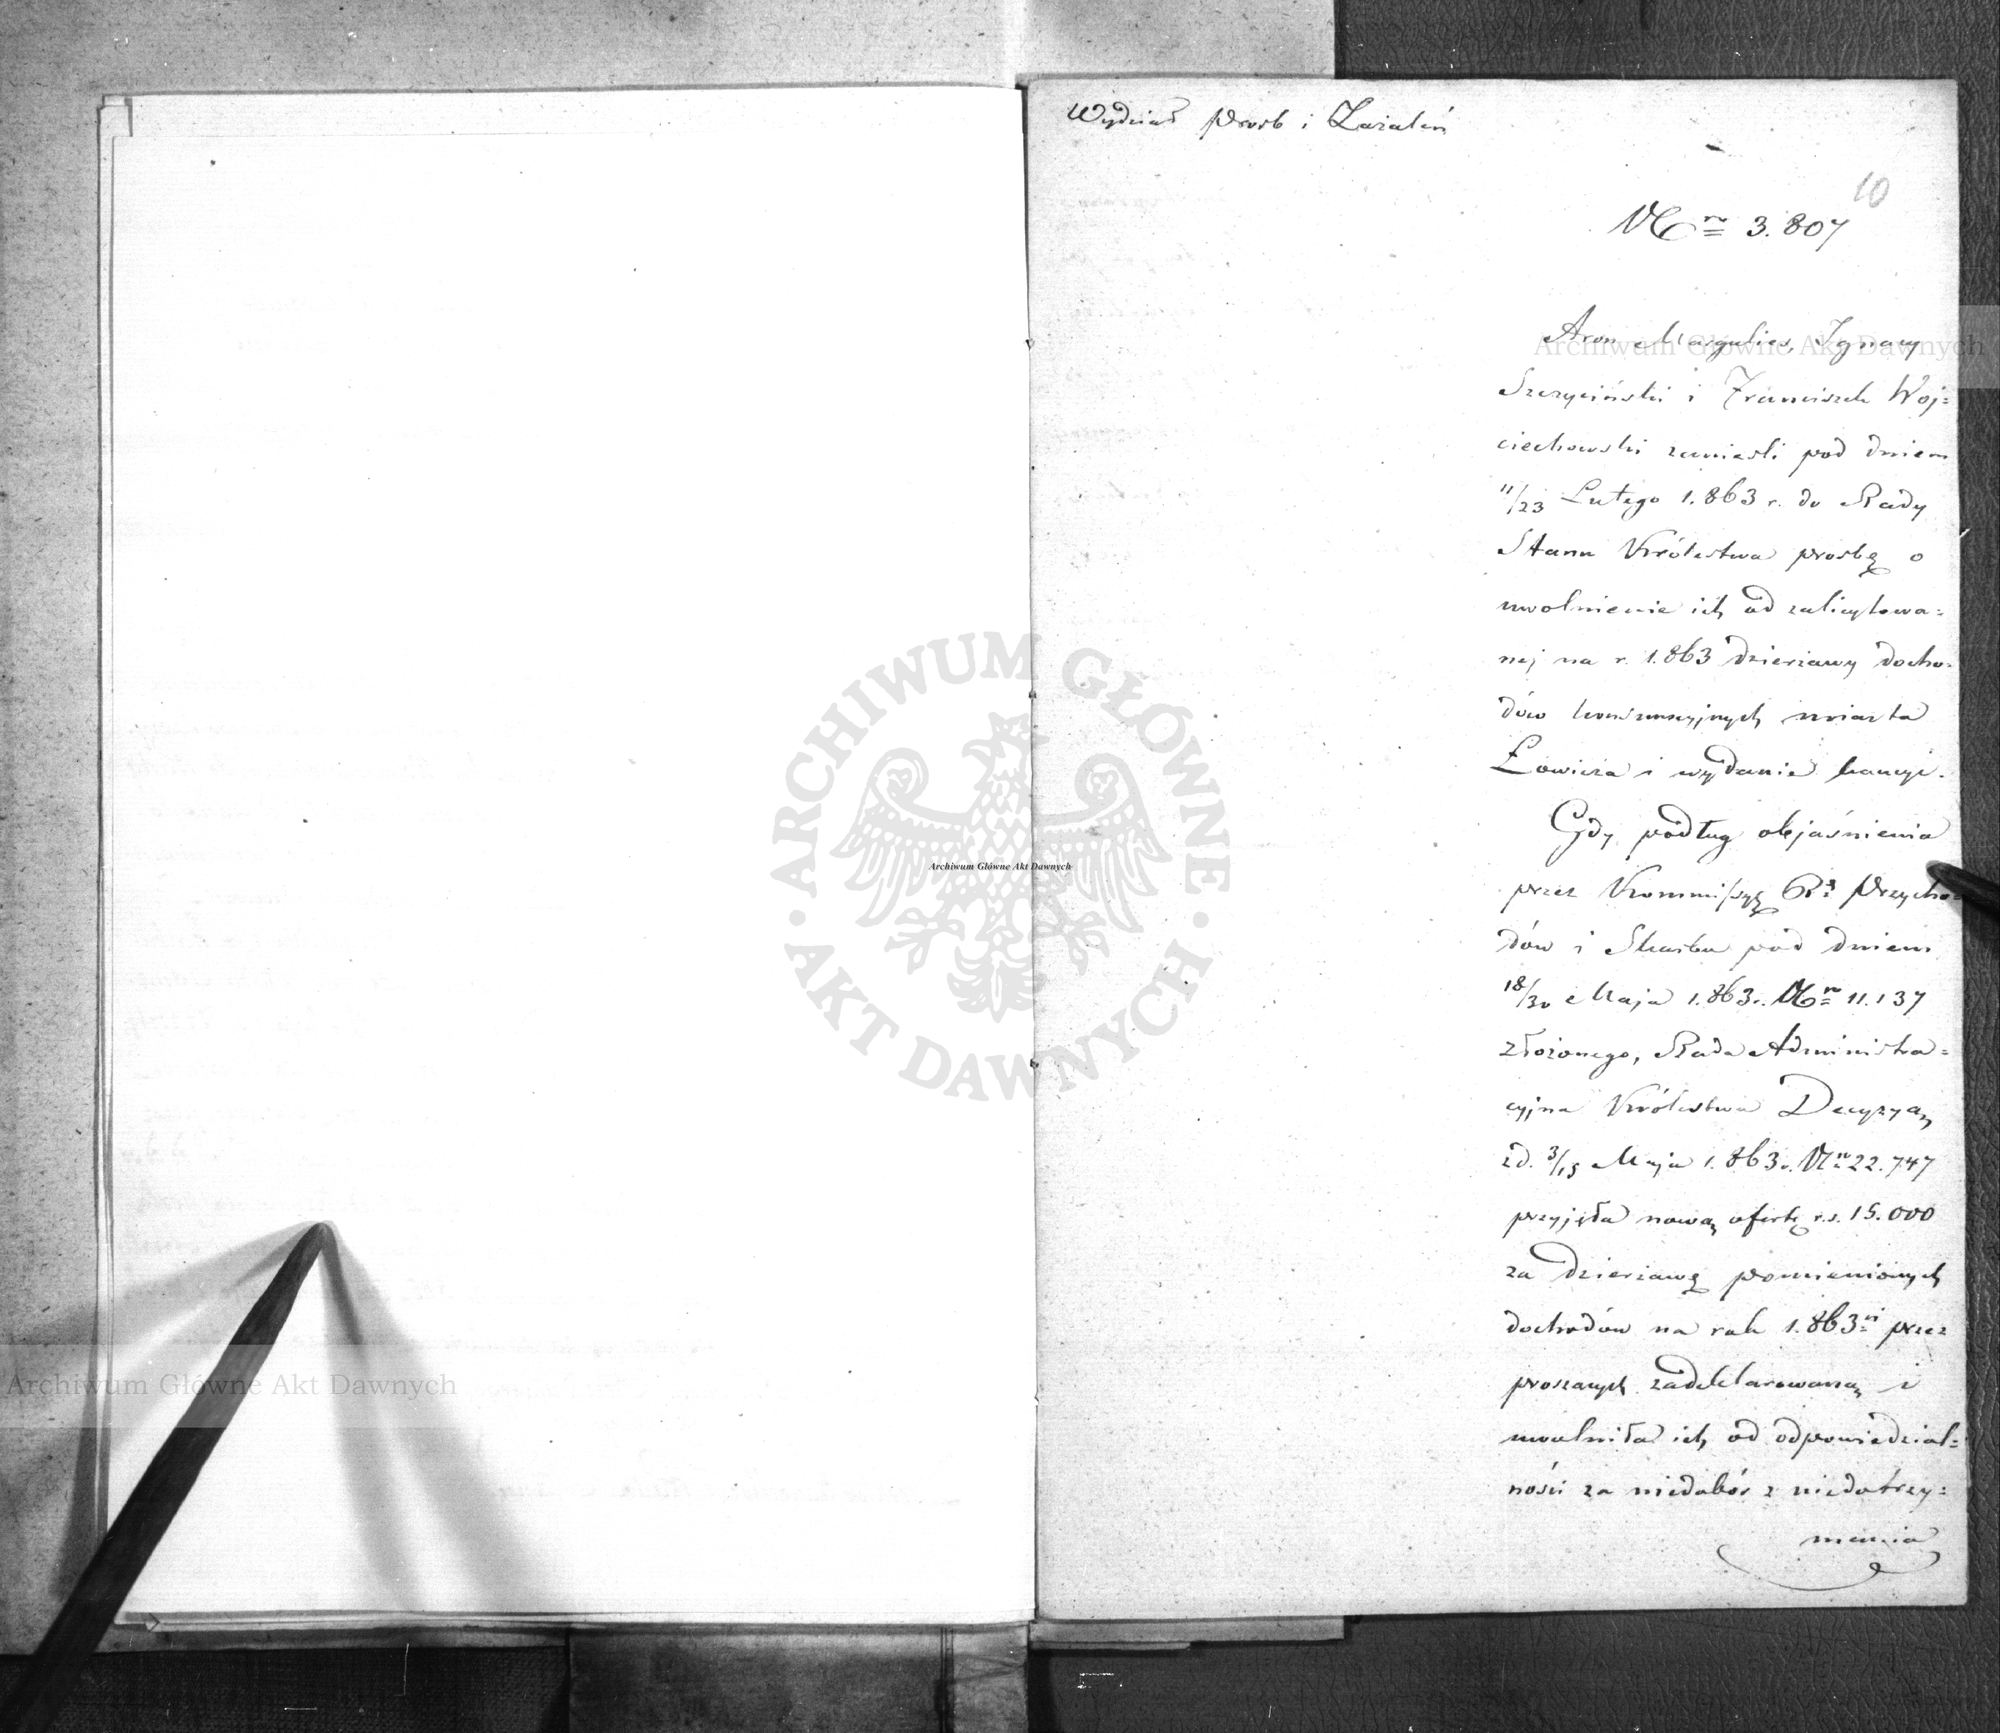 Wydział Prośb i Zażaleń
10
Nr 3.807
Aron Margulies, Ignacy
Szczyciński i Franciszek Woj=
ciechowski zanieśli pod dniem
11/23 Lutego 1.863 r. do Rady
Stanu Królestwa prośbę o
uwolnienie ich od zalicytowa=
nej na r. 1.863 dzierżawy docho=
dów konsumcyjnych miasta
Łowicza i wydanie kaucyi.
Gdy, podług objaśnienia
przez Kommissyę Rz. Przycho=
dów i Skarbu pod dniem
18/30 Maja 1.863 r. Nr 11.137
złożonego, Rada Administra=
cyjna Królestwa Decyzyą
z d. 3/15 Maja 1.863 r. Nr 22.747
przyjęła nową ofertę r.s. 15.000
za dzierżawę pomienionych
dochodów na rok 1.863 przez
proszących zadeklarowaną i
uwolniła ich od odpowiedzial=
ności za niedobór z niedotrzy=
mania
ARCHIWUM GŁÓWNE AKT DAWNYCH
Archiwum Główne Akt Dawnych
Archiwum Główne Akt Dawnych
Archiwum Główne Akt Dawnych